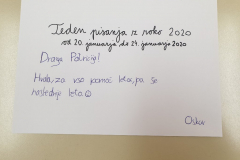 Teden pisanja z roko 2020
od 20. januarja do 24. januarja 2020
Draga Patricija!
Hvala, za vso pomoč letos, pa se
naslednje leto ☺
Oskar